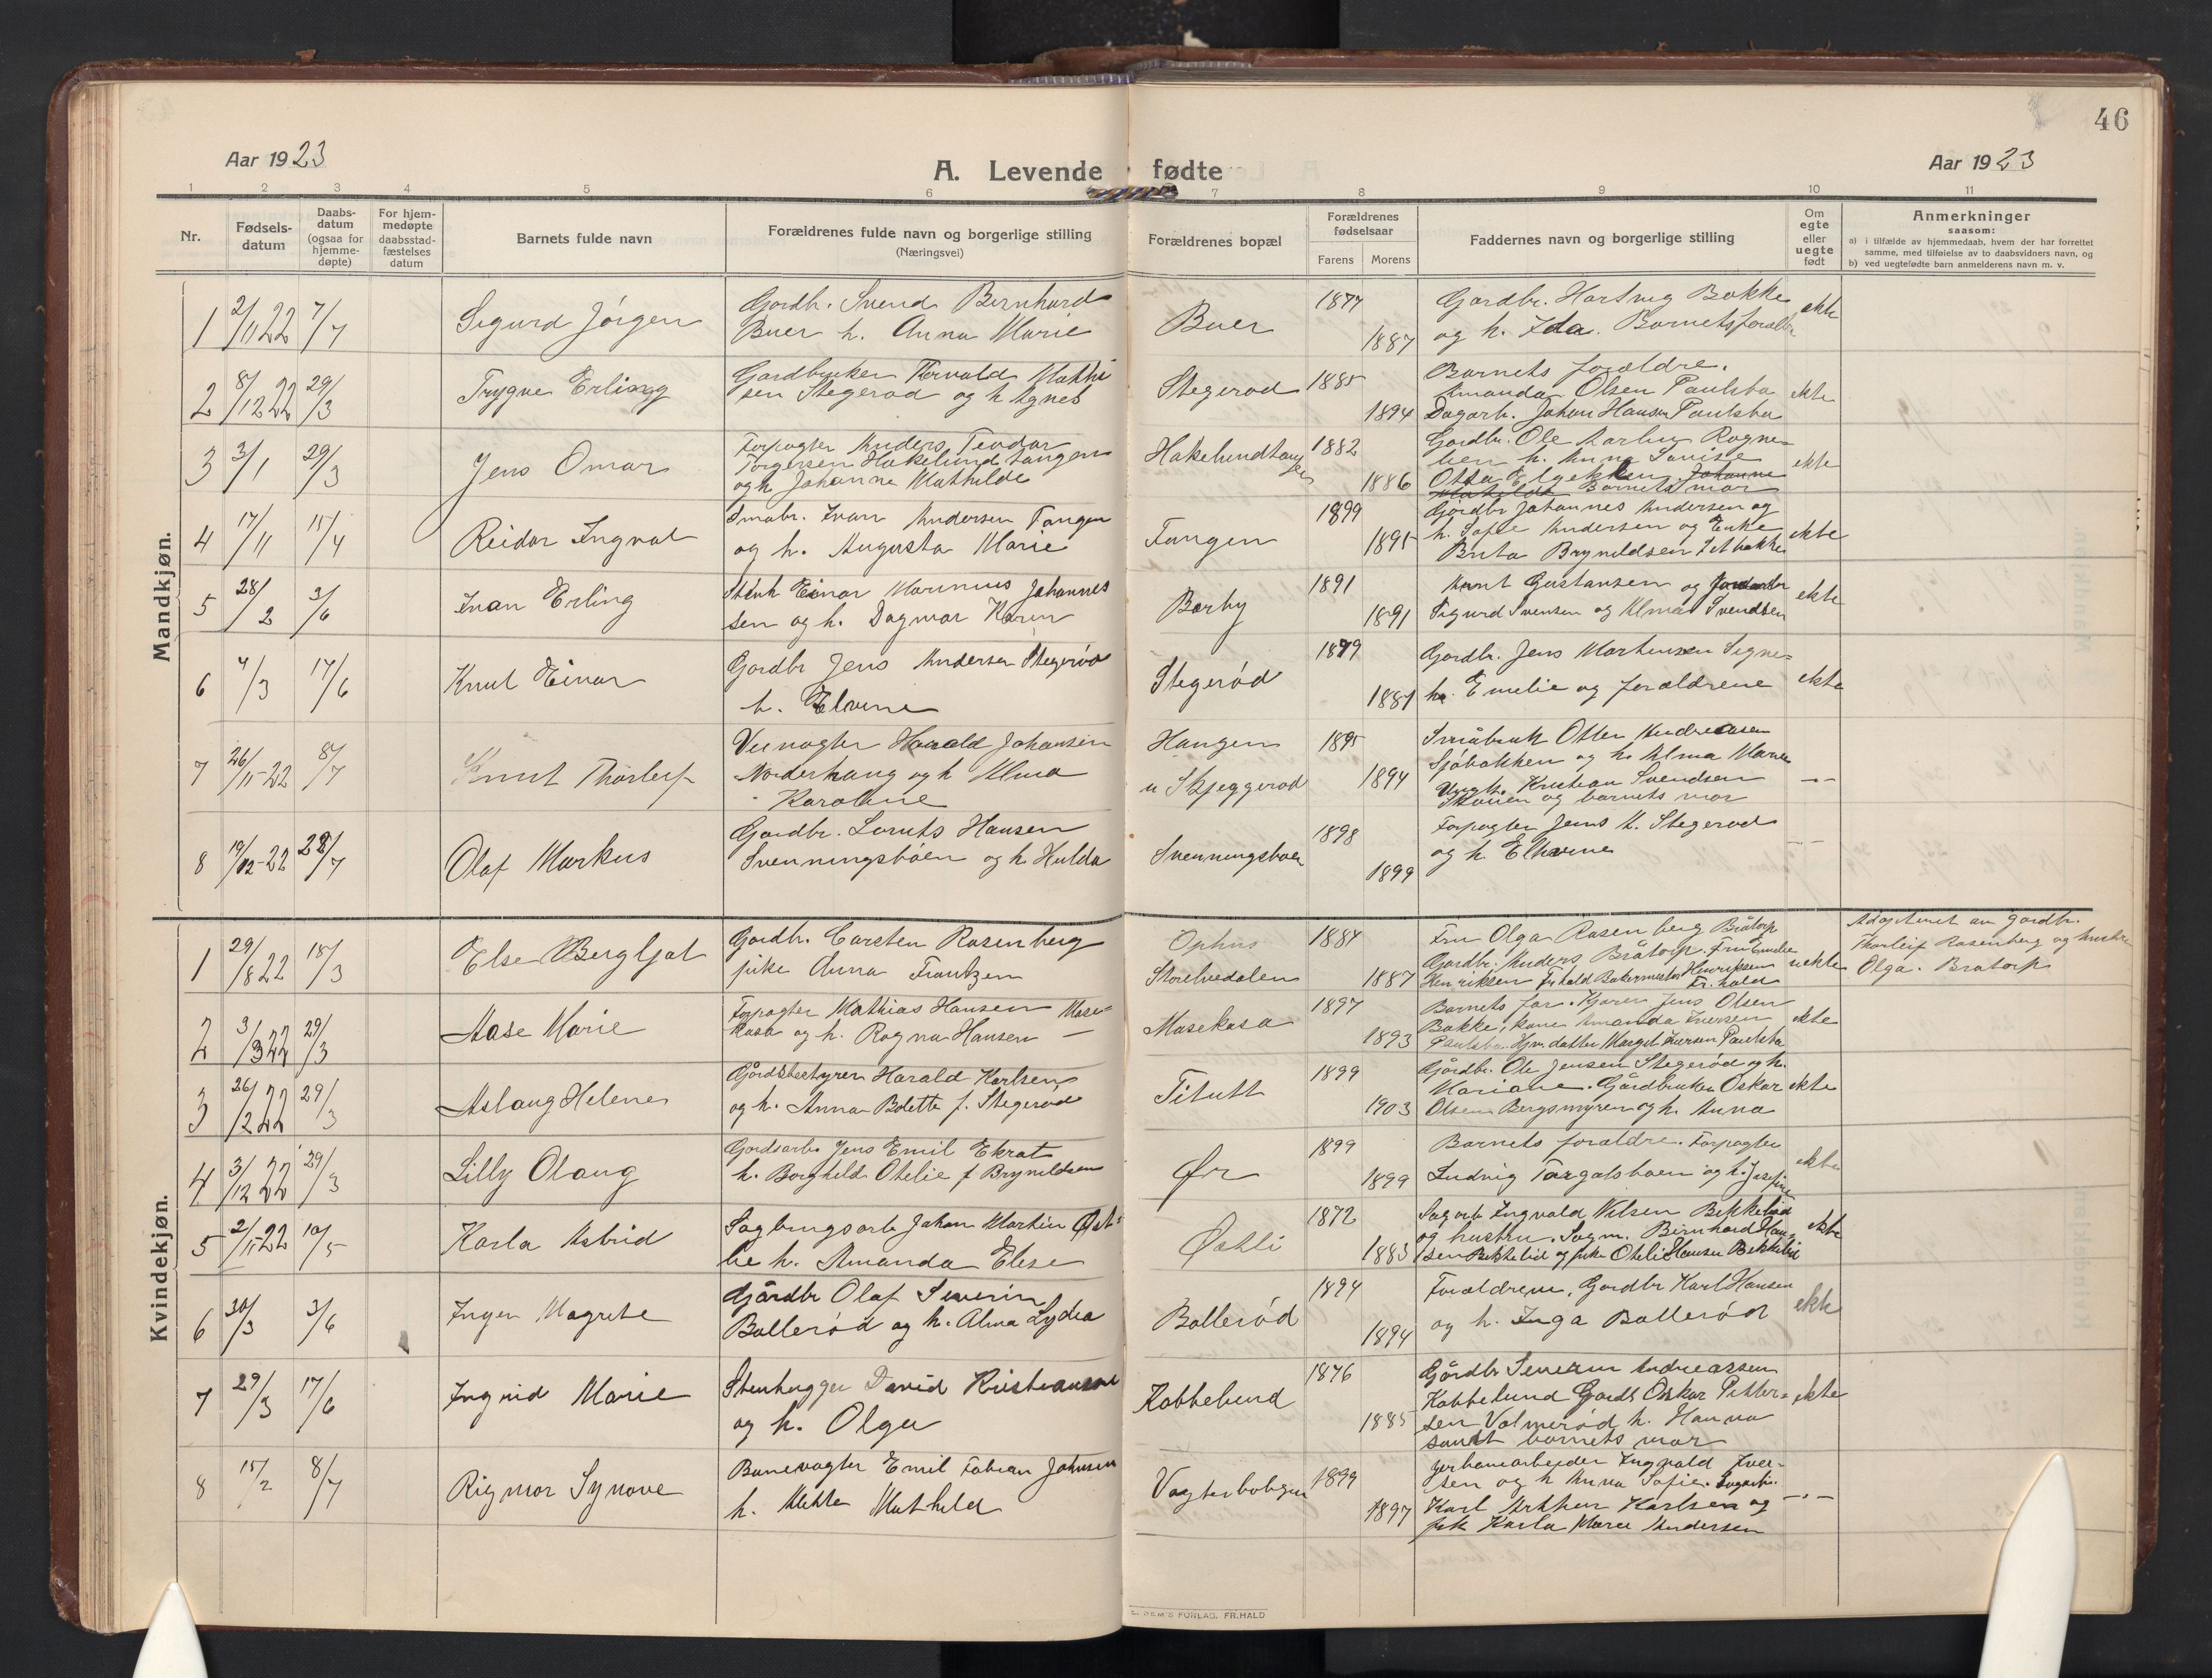 46
Aar 1923
A. Levende fødte
Aar 1923
1 2 3 4 5 6 7 8 9 10 11
Nr.
Fødsels-
datum
Daabs-
datum
(ogsaa for
hjemme-
døpte)
For hjem-
medøpte
daabsstad-
fæstelses
datum
Barnets fulde navn
Forældrenes fulde navn og borgerlige stilling
(Næringsvei)
Forældrenes bopæl
Forældrenes
fødselsaar
Farens Morens
Faddernes navn og borgerlige stilling
Om
egte
eller
uegte
født
Anmerkninger
saasom:
a) i tilfælde av hjemmedaab, hvem der har forrettet
samme, med tilføielse av to daabsvidners navn, og
b) ved uegtefødte barn anmelderens navn m. v.
Mandkjøn.
1 2/11 22 7/7 Sigurd Jørgen
Gardbr. Svend Bernhard
Buer h. Anna Marie
Buer
1877
1887
Gardbr. Hartvig Bakke
og h. Ida. Barnets forældre
ekte
2 8/12 22 29/3 Trygve Erling
Gardbruker Thorvald Mathi
sen Stegerød og h Agnes
Stegerød
1885
1894
Barnets forældre.
Amanda Olsen Paulsbo
Dagarb. Johan Hansen Paulsbo
ekte
3 3/1 29/3 Jens Omar
Forpagter Anders Teodor
Torgersen Hakelund tangen
og h Johanne Mathilde
Hakelundtangen
1882
1886
Gardbr. Ole Martin Rogne-
lien h. Anna Lovise
Otta Elgetkken Johanne
Mathilde Barnets mor
ekte
4 17/11 15/4 Reidar Ingval
Smabr. Ivan Andersen Tangen
og h. Augusta Marie
Tangen
1899
1895
Gårdbr Johannes Andersen og
h. Sofie Andersen og Enke
Brita Bryneldsen
ekte
5 28/2 3/6 Ivan Erling
Stenh Einar Marinius Johannes
sen og h. Dagmar Karen
Barby
1891
1891
Knut Gustavsen og
Sigurd Svensen og Alma Svendsen
ekte
6 4/3 17/6 Knut Einar
Gardbr Jens Andersen Stegerød
h. Elvine
Stegerød
1879
1881
Gardbr. Jens Martensen Signe-
h. Emelie og forældrene
ekte
7 26/11-22 8/7 Knut Thorleif
Veivogter Harald Johansen
Norderhaug og h Alma
Karoline
Haugen
u Skjeggerød
1895
1894
Småbruk Otter Andreasen
Sjøbakken og h. Alma Marie
Ungk. Kristian Svendsen
Skouen og barnets mor
-"-
8 19/12-22 22/7 Olaf Markus
Gardbr. Lorents Hansen
Svenningsbøen og h Hulda
Svenningsbøen
1898
1899
Forpagter Jens A. Stegerød
og h. Elvine
-"-
Kvindekjøn.
1 29/8 22 18/3 Else Bergljot
Gardbr. Carsten Rosenberg
pike Anna Frantzen
Ophus
Storelvedalen
1884
1887
Fru Olga Rosenberg Bråtorp
Gardbr. Anders Bråtorp. Fru
Henriksen Fr.hald Bakermester Henriksen
Fr. hald
uekte
Adopteret av gardbr.
Thorleif Rosenberg og hustru
Olga. Bratorp
2 3/3 22 29/3 Aase Marie
Forpagter Mathias Hansen Mose-
kasa og h. Ragna Hansen —
Mosekasa
1897
1893
Barnets far. Kjører Jens Olsen
Bakke, kone Amanda Iversen
Paulsbo. Hjv. datter Margit Iversen Paulsbo
ekte
3 26/12 22 29/3 Aslaug Helene
Gårdsbestyrer Harald Karlsen
og h. Anna Bolette f. Stegerød
Titutt
1899
1903
Gårdbr. Ole Jensen Stegerød og h.
Mariane. Gårdbruker Oskar
Olsen Bergsmyren og h. Anna
ekte
4 3/12 22 29/3 Lilly Olaug
Gardsarb. Jens Emil Ekrat
h. Borghild Otelie f Bryneldsen
Ør
1899
1899
Barnets forældre. Forpagter
Ludvig Torgalsboen og h. Josefine
ekte
5 2/11-22 10/5 Karla Astrid
Sagbrugsarb Johan Martin Øst-
lie h. Amanda Elise
Østli
1872
1883
Sagarb Ingvald Nilsen Bekkelid
og hustru. Sagm. Bernhard Han-
sen Bekkelid og pike Oteli Hansen Bekkelid
ekte
6 30/3 3/6 Inger Magrete
Gårdbr Olaf Severin
Bollerød og h. Alma Lydia
Bollerød
1894
1894
Forældrene, Gardbr Karl Hansen
og h. Inga Bollerød
ekte
7 29/3 17/6 Ingrid Marie
Stenhugger David Kristiansen
og h. Olga
Kabbelund
1876
1885
Gårdbr Severin Andreassen
Kabbelund Gardb Oskar Petter-
sen Volmerød h. Hanna
samt barnets mor
ekte
8 15/2 8/7 Rigmor Synøve
Banevogter Emil Fabian Johnsen
h. Mathilde
Vogterboligen
1899
1897
Jerbanearbeider Ingvald Iver-
sen og h Anna Sofie. Sagarb.
Karl Arthur Karlsen og
frk Karla Marie Andersen
-"-
E. SEM'S FORLAG, FR.HALD